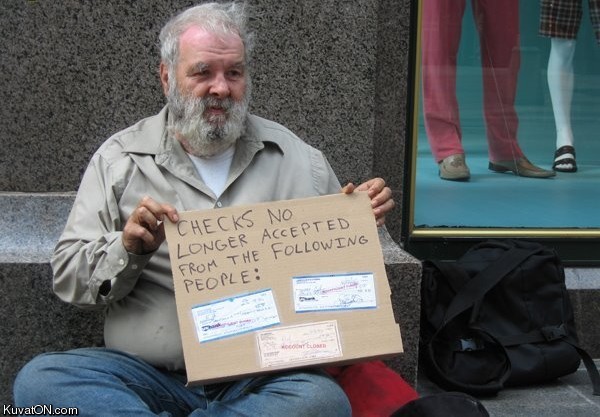 CHECKS NO
LONGER ACCEPTED
FROM THE FOLLOWING
PEOPLE:
ACCOUNT CLOSED
KuvatON.com